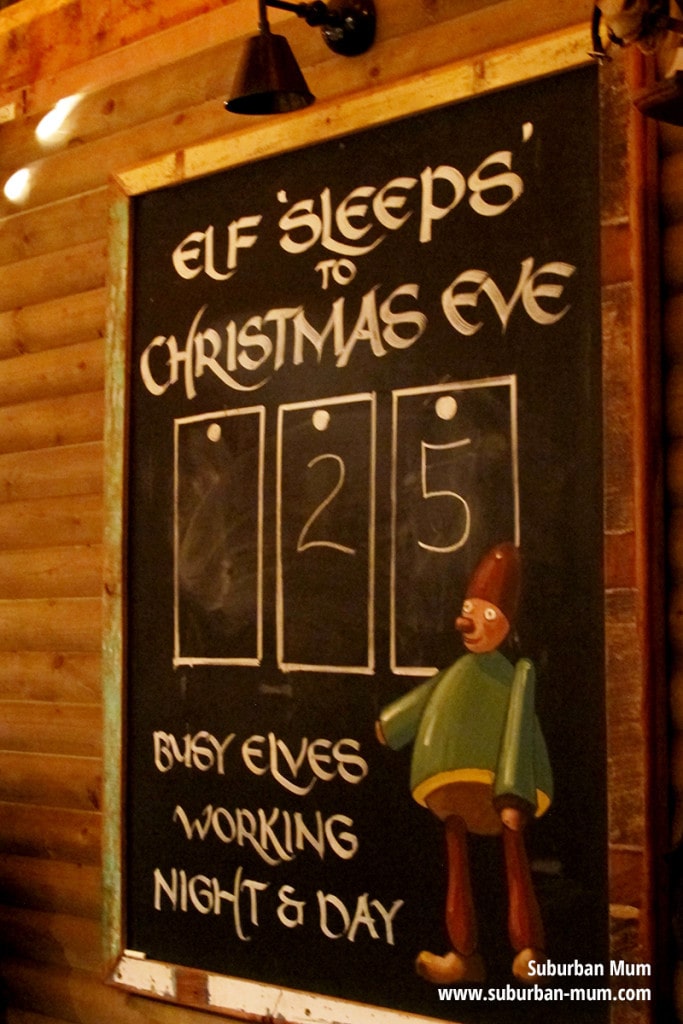 ELF 'SLEEPS'
TO
CHRISTMAS EVE
2 5
BUSY ELVES
WORKING
NIGHT & DAY
Suburban Mum
www.suburban-mum.com